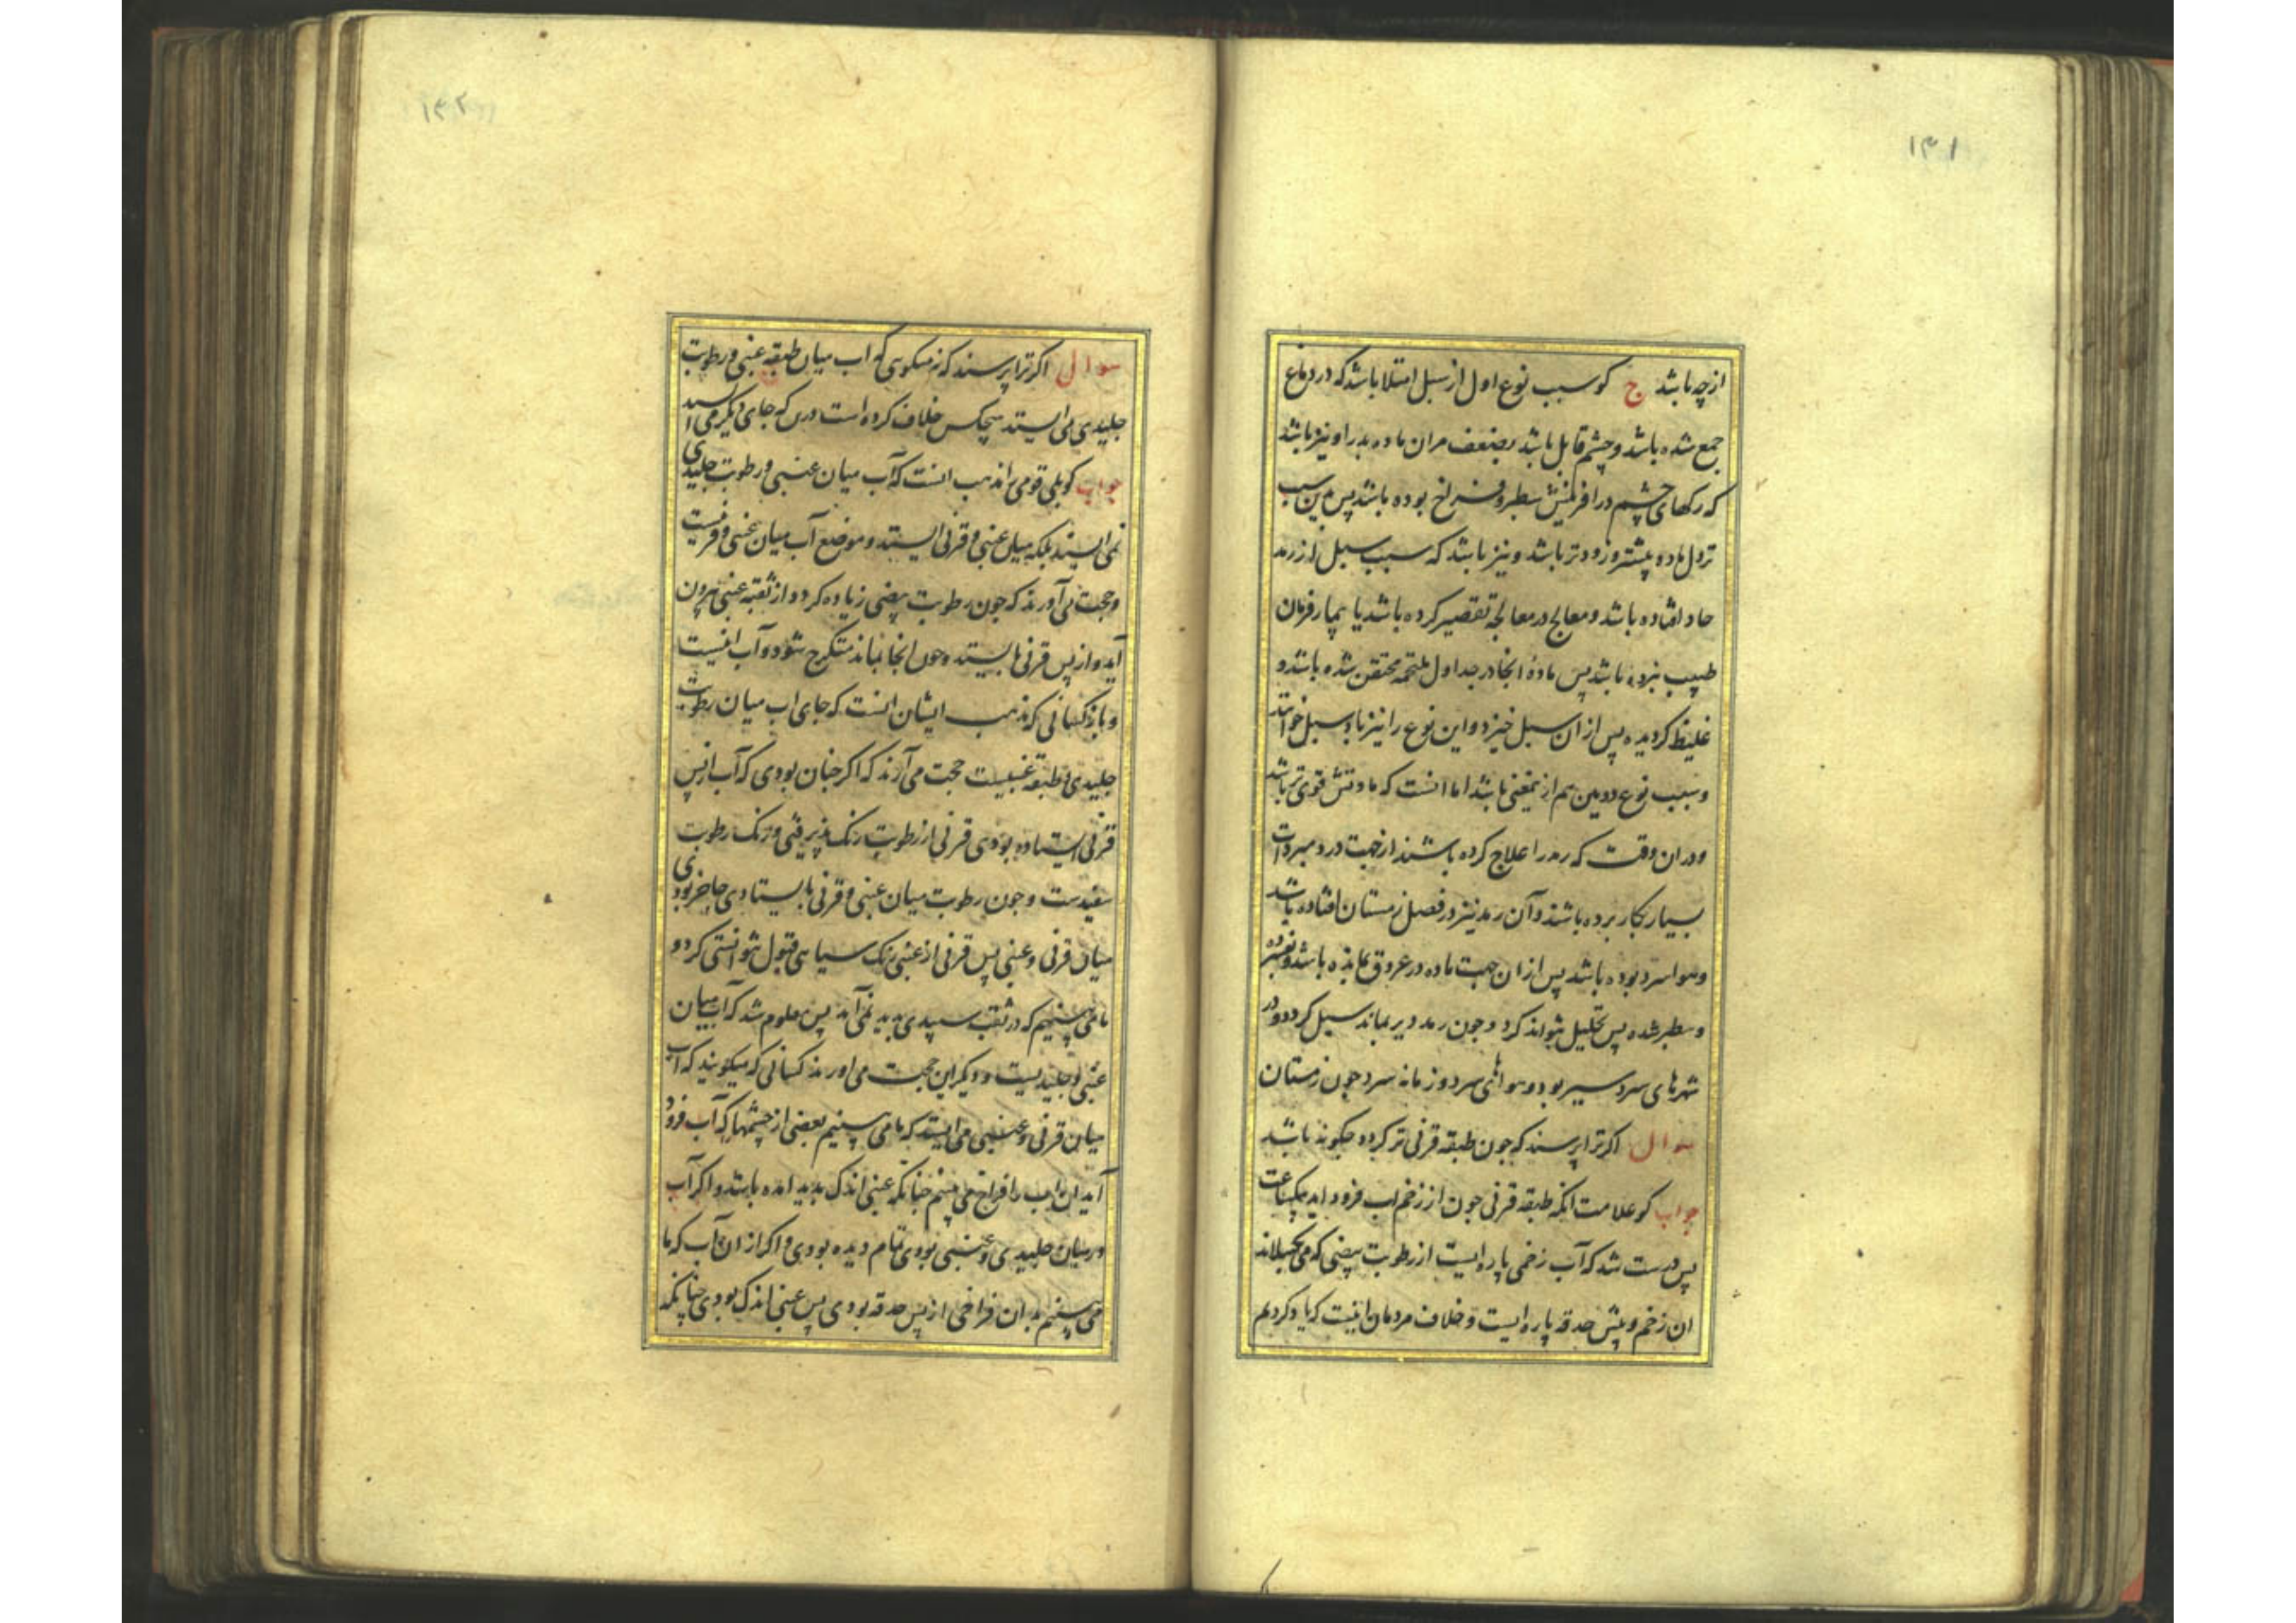 ۱۳۱
ازچه باشد ج کو سبب نوع اول از سبل امتلا باشد که در دماغ
جمع شده باشد و چشم قابل باشد بضعف مران ماده بدراونیز باشد
که رکهای چشم درافرینش سطبر وفراخ بوده باشد پس بدین سبب
نزول ماده پیشتر وزودتر باشد ونیز باشد که سبب سبل از رمد
حاد افتاده باشد ومعالج درمعالجه تقصیر کرده باشد یا بیمار فرمان
طبیب نبرده باشد پس ماده انجا درجداول ملتحمه محتقن شده باشد و
غلیظ کردیده پس ازان سبل خیزد واین نوع را نیز باد سبل خوانند
وسبب نوع دومین هم ازیمعنی باشد اما انست که مادتش قوی تر باشد
ودران وقت که رمد را علاج کرده باشند ازجهت درد مبردات
بسیار بکار برده باشند وآن رمد نیز درفصل زمستان افتاده باشد
وهوا سرد بوده باشد پس ازان جهت ماده درعروق بمانده باشد وفسرده
وسطبر شده پس تحلیل نتواند کرد وجون رمد دیر بماند سبل کردد ودر
شهرهای سردسیر بود وهواهای سرد وزمانه سرد جون زمستان
سوال اکر ترا پرسند که جون طبقه قرنی تر کردد جکونه باشد
جواب کو علامت انکه طبقه قرنی جون از زخم اب فرود اید یکساعت
پس درست شد که آب زخمی پاره ایست از رطوبت بیضی که می
ان زخم وپیش حدقه پاره ایست وخلاف مردمان اینست که یاد کردیم
۱۳۲
سوال اکر ترا پرسند که نه میکویی که اب میان طبقه عنبی ورطوبت
جلیدی می ایستد هیچکس خلاف کرده است درین که جای دیکر می ایستد
جواب کو بلی قومی را مذهب انست که آب میان عنبی ورطوبت جلیدی
نمی ایستد بلکه میان عنبی وقرنی ایستد وموضع آب میان عنبی وقرنیست
وحجت می آورند که جون رطوبت بیضی زیاده کردد از ثقبه عنبی بیرون
آید واز پس قرنی بایستد وجون انجا بماند متکرج شود وآب اینست
وباز کسانی که مذهب ایشان انست که جای اب میان رطوبت
جلیدی وطبقه عنبیست حجت می آرند که اکر جنان بودی که آب ازپس
قرنی ایستاده بودی قرنی از رطوبت رنک پذیرفتی ورنک رطوبت
سفیدست وجون رطوبت میان عنبی وقرنی بایستادی حاجز بودی
میان قرنی وعنبی پس قرنی از عنبی رنک سیاهی قبول نتوانستی کرد و
ما می بینیم که در ثقبه سپیدی پدید نمی آمد پس معلوم شد که آب میان
عنبی وجلیدیست ودیکر این حجت می اورند کسانی که میکویند که آب
میان قرنی وعنبی می ایستد که ما می بینیم بعضی از چشمها که آب فرود
آید ان اب را فراخ می بینیم جنانکه عنبی اندک پدید امده باشد واکر آب
درمیان جلیدی وعنبی بودی تمام دیده بودی واکر از ان آب که ما
می بینیم بدان فراخی از پس حدقه بودی پس عنبی اندک بودی جنانکه